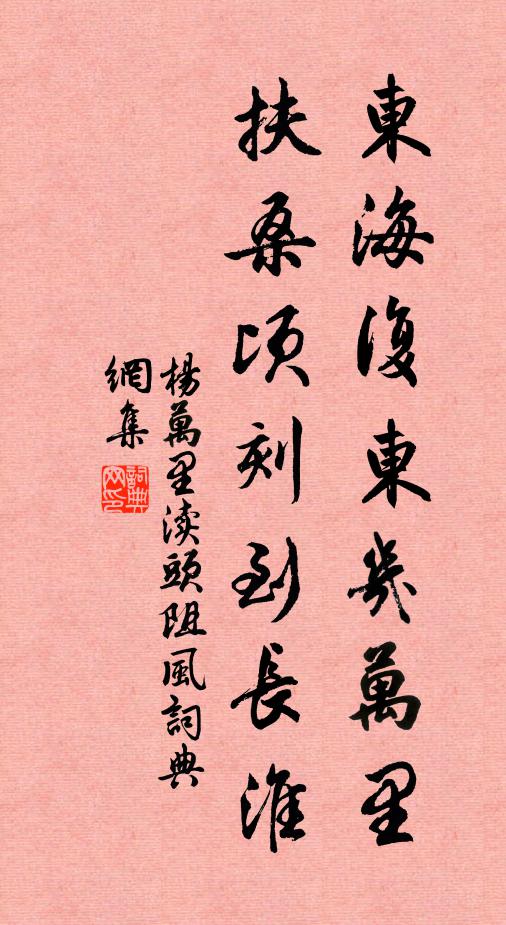 東海復東幾萬里
扶桑頃刻到長淮
楊萬里瀆頭阻風詞典
網集
詞典
網印